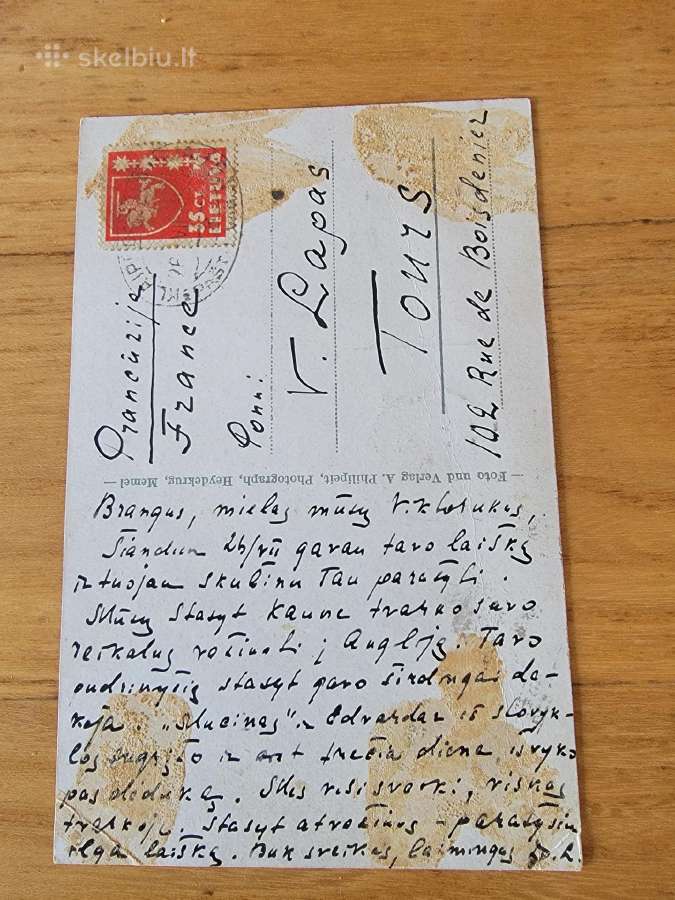 skelbiu.lt
35 CT.
LIETUVA
Prancūzija
France
Ponui
V. Lapas
Tours
102 Rue de Boisdenier
— Foto und Verlag A. Philipeit, Photograph, Heydekrug, Memel —
Brangus, mielas mūsų Viktorukas,
Šiandien 26/VII gavau tavo laišką
ir tuojau skubinu Tau parašyti.
Mūsų Stasyt Kaune tvarko savo
reikalus važiuoti į Angliją. Tavo
Stasyt gavo širdingai dė-
koja. ir Edvardas iš stovyk-
los sugrįžo ir ant trečią dieną išvyko
pas dėduką. Mes visi sveiki, viskas
tvarkoj. Stasyt atvažiavus - parašysiu
ilgą laišką. Buk sveikas, laimingas